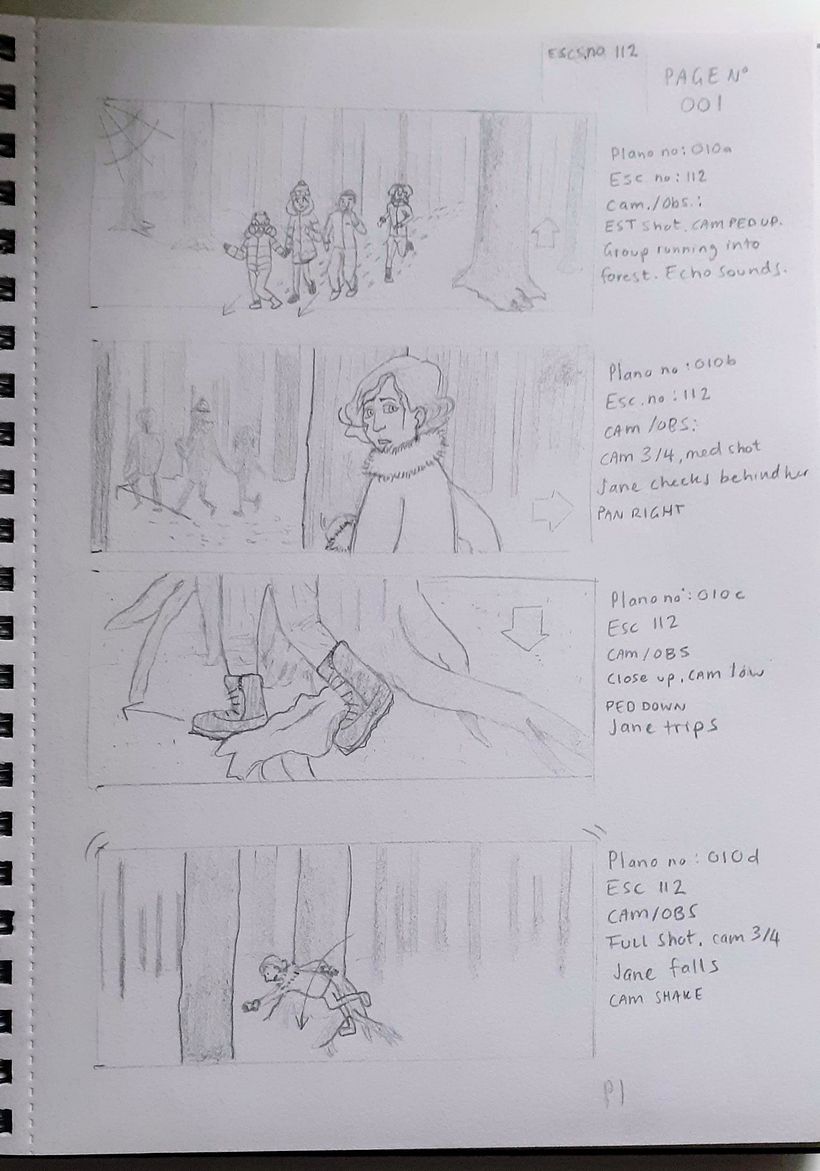 ESCS.no. 112
PAGE Nº
001
Plano no: 010a
Esc. no: 112
Cam./Obs.:
EST Shot. CAM PED UP.
Group running into
forest. Echo sounds.
Plano no: 010b
Esc. no: 112
CAM/OBS:
CAM 3/4, med shot
Jane checks behind her
PAN RIGHT
Plano no: 010c
Esc 112
CAM/OBS
Close up, CAM low
PED DOWN
Jane trips
Plano no: 010d
ESC 112
CAM/OBS
FULL Shot, cam 3/4
Jane falls
CAM SHAKE
P1